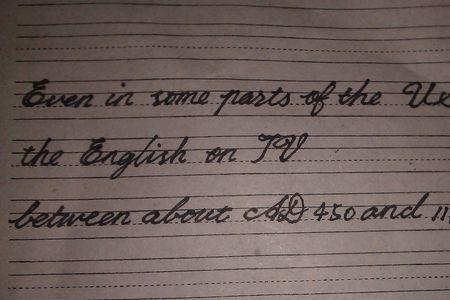 Even in some parts of the
the English on TV
between about AD 450 and 11